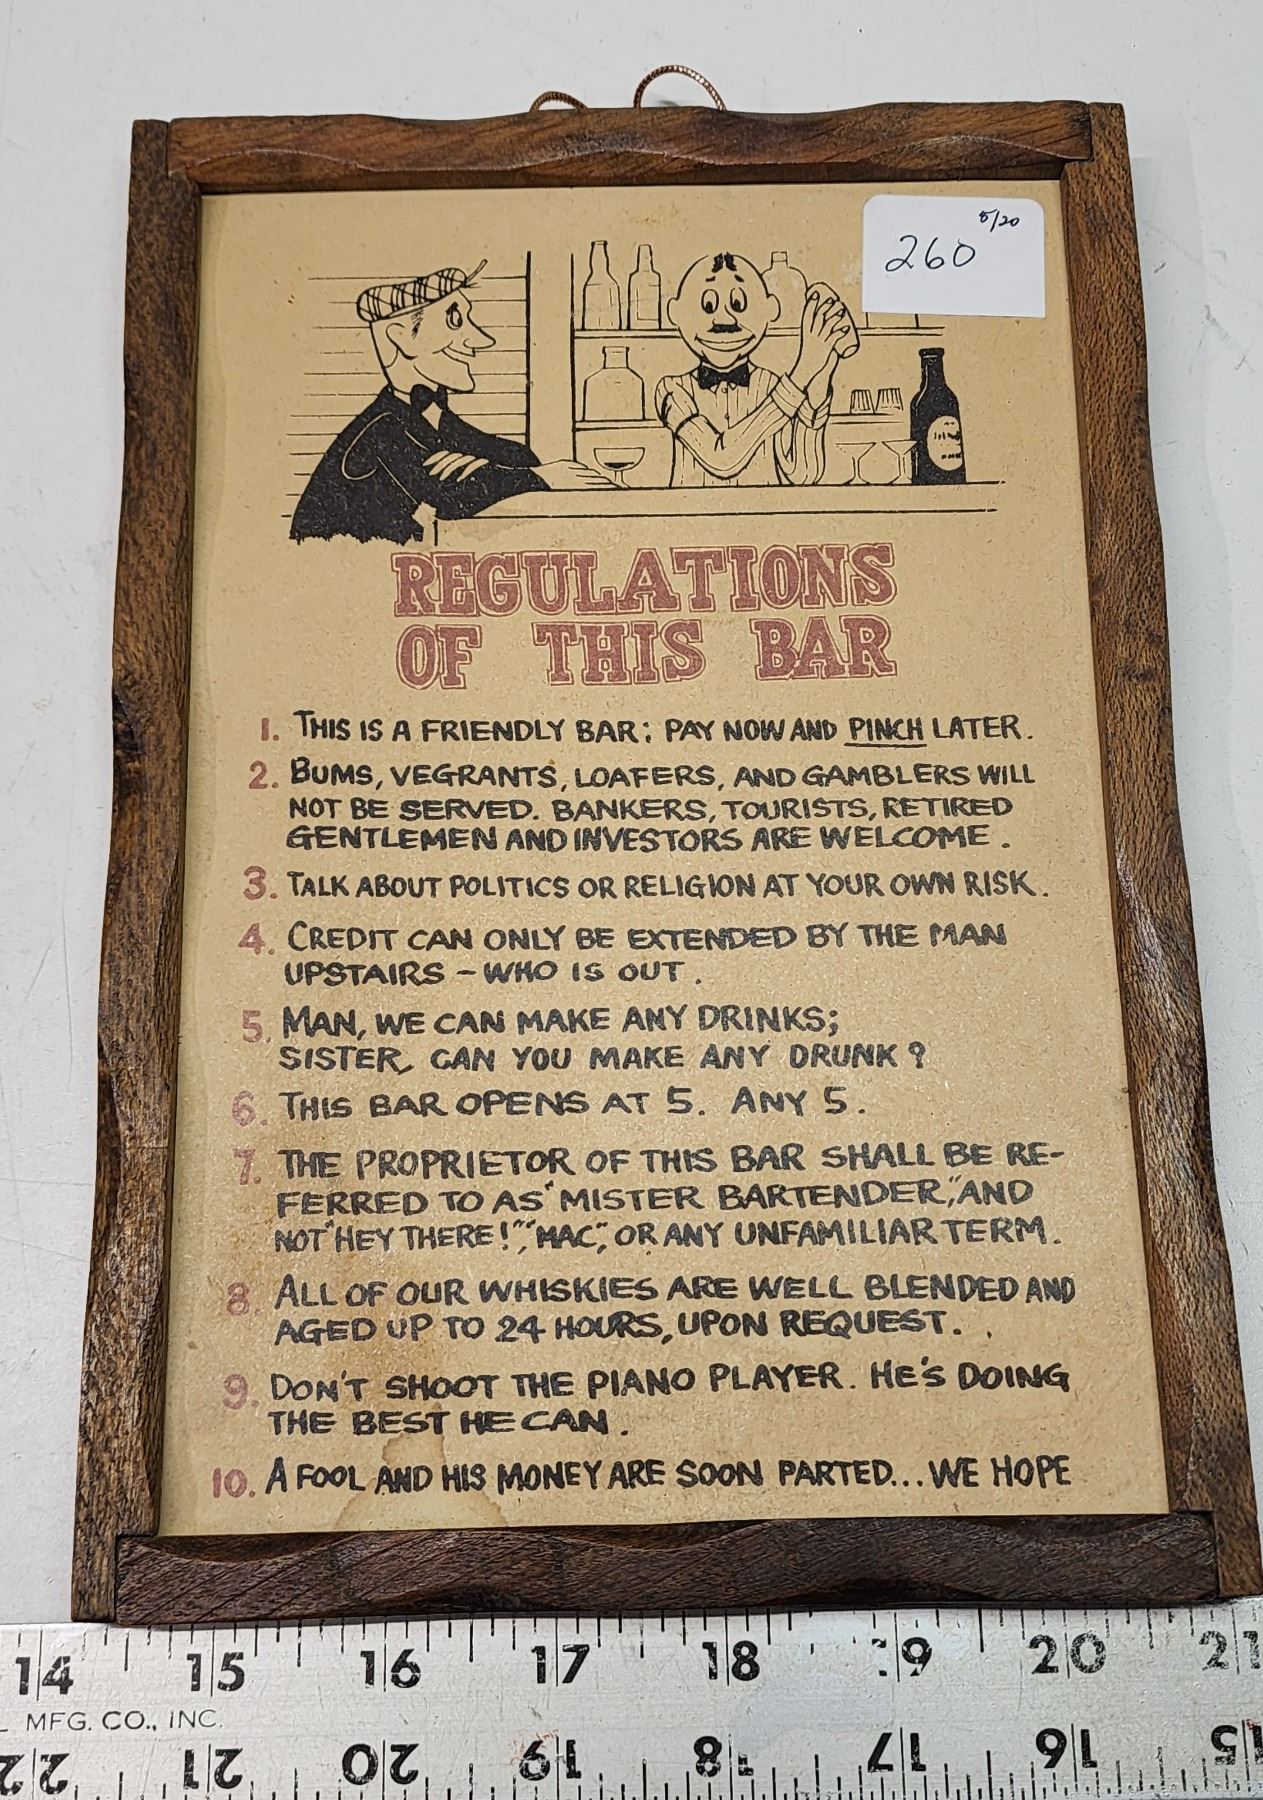 5/20
260
REGULATIONS
OF THIS BAR
1. THIS IS A FRIENDLY BAR; PAY NOW AND PINCH LATER.
2. BUMS, VEGRANTS, LOAFERS, AND GAMBLERS WILL
NOT BE SERVED. BANKERS, TOURISTS, RETIRED
GENTLEMEN AND INVESTORS ARE WELCOME.
3. TALK ABOUT POLITICS OR RELIGION AT YOUR OWN RISK.
4. CREDIT CAN ONLY BE EXTENDED BY THE MAN
UPSTAIRS – WHO IS OUT.
5. MAN, WE CAN MAKE ANY DRINKS;
SISTER, CAN YOU MAKE ANY DRUNK?
6. THIS BAR OPENS AT 5. ANY 5.
7. THE PROPRIETOR OF THIS BAR SHALL BE RE-
FERRED TO AS "MISTER BARTENDER," AND
NOT "HEY THERE!", "MAC", OR ANY UNFAMILIAR TERM.
8. ALL OF OUR WHISKIES ARE WELL BLENDED AND
AGED UP TO 24 HOURS, UPON REQUEST.
9. DON'T SHOOT THE PIANO PLAYER. HE'S DOING
THE BEST HE CAN.
10. A FOOL AND HIS MONEY ARE SOON PARTED... WE HOPE
14 15 16 17 18 19 20 21
MFG. CO., INC.
22 21 20 19 18 17 16 15